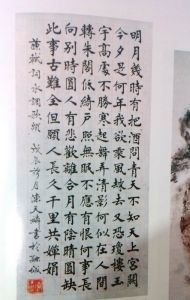 明月幾時有把酒問青天不知天上宮闕
今夕是何年我欲乘風歸去又恐瓊樓玉
宇高處不勝寒起舞弄清影何似在人間
轉朱閣低綺戶照無眠不應有恨何事長
向別時圓人有悲歡離合月有陰晴圓缺
此事古難全但願人長久千里共嬋娟
詞水調歌頭 月陳書於